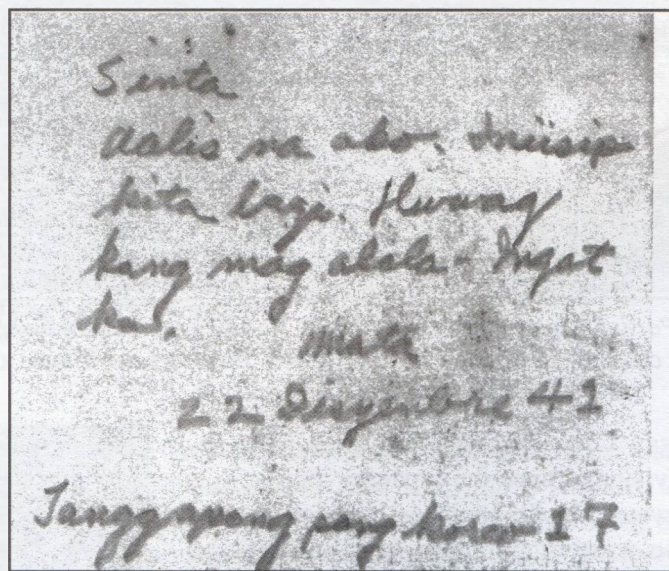 Sinta
Aalis na ako. Iniisip
kita lagi. Huwag
kang mag alala - Ingat
ka.
22 Disyembre 41
Tanggapang pang 17